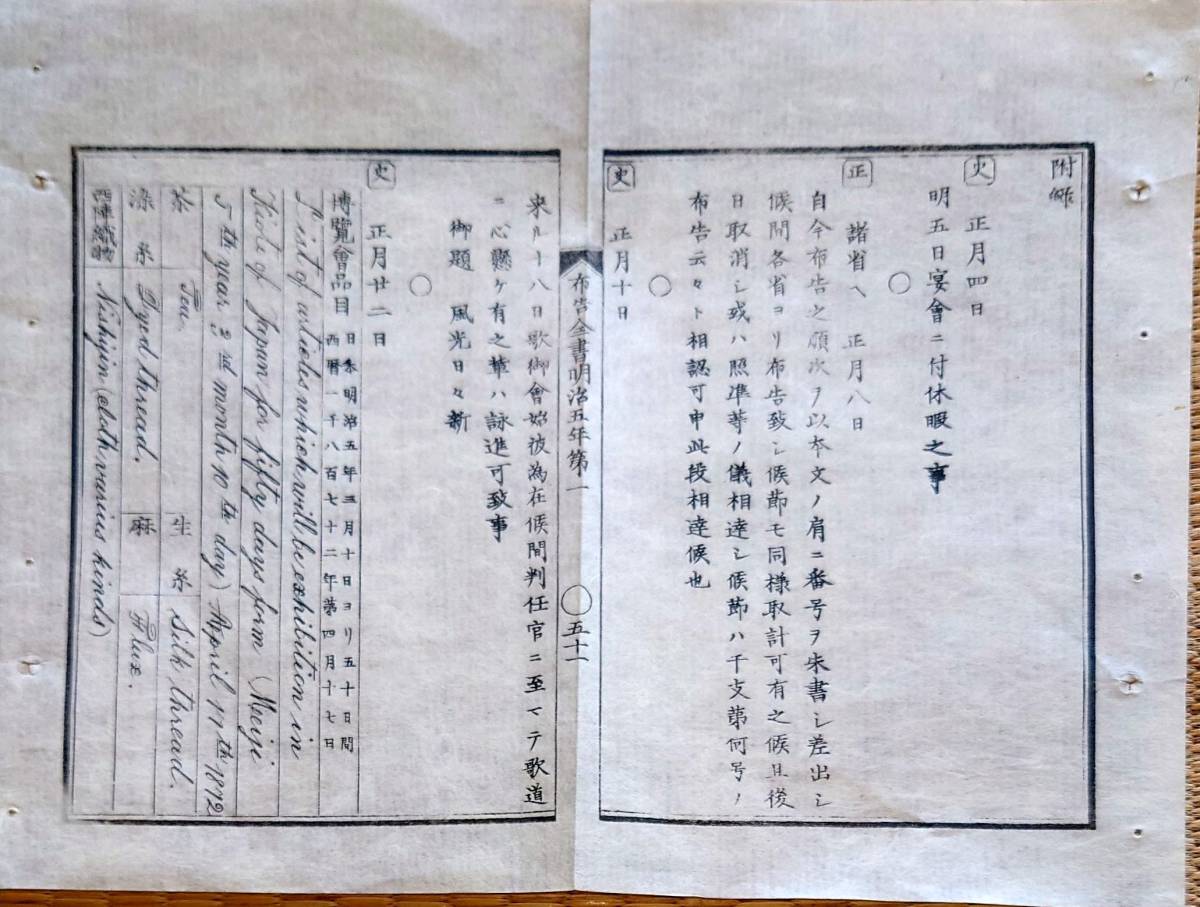 附録
史 正月四日
明五日宴會ニ付休暇之事
○
正 諸省ヘ 正月八日
自今布告之順次ヲ以本文ノ肩ニ番号ヲ朱書シ差出シ
候間各省ヨリ布告致シ候節モ同様取計可有之候且後
日取消シ或ハ照準等ノ儀相達シ候節ハ干支第何号ノ
布告云々ト相認可申此段相達候也
○
史 正月十日
布告全書明治五年第一 ○五十一
来ル十八日歌御會始被為在候間判任官ニ至マテ歌道
ニ心懸ケ有之輩ハ詠進可致事
御題 風光日々新
○
史 正月廿二日
博覧會品目 日本明治五年三月十日ヨリ五十日間
西暦一千八百七十二年第四月十七日
List of articles which will be exhibition in
Kioto of Japan for fifty days form (Meiji
5th year 3rd month 10th day) April 17th 1872
茶 Tea. 生糸 Silk thread.
染糸 Dyed thread. 麻 Flax.
西陣織物 Nishijin (cloth various kinds)